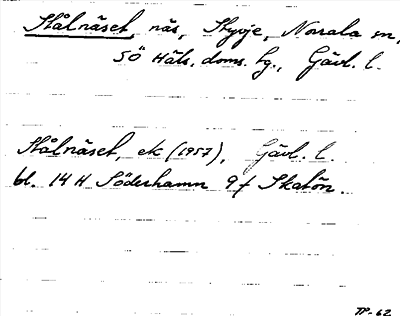 Stålnäset, näs, Stysje, Norrala sn,
SÖ Häls. doms. hg., Gävl. l.
Stålnäset, ek (1957), Gävl. l.
bl. 14 H Söderhamn 9f Skatön.
TP-62